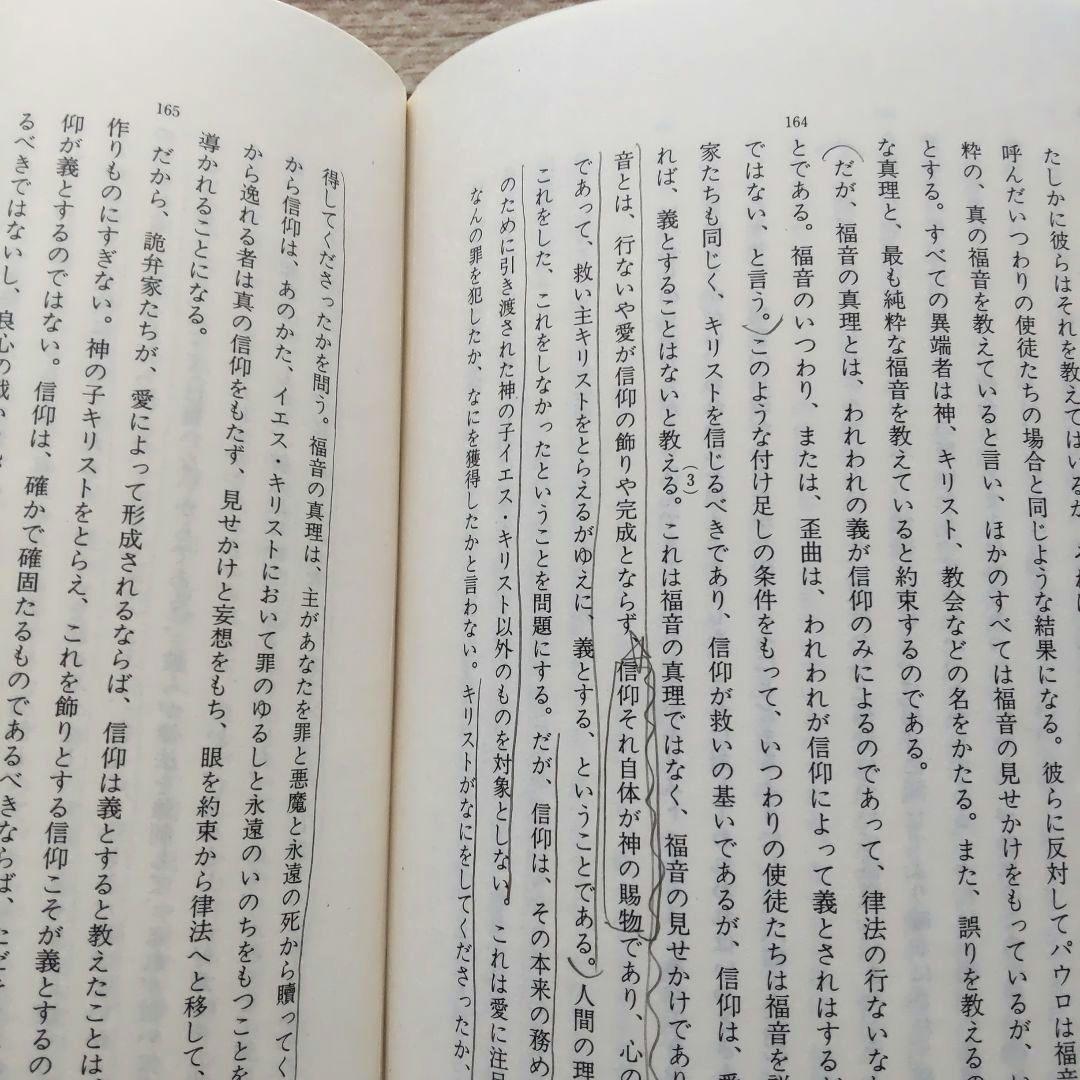 164
たしかに彼らはそれを教えてはいるが、それに
呼んだいつわりの使徒たちの場合と同じような結果になる。彼らに反対してパウロは福音
粋の、真の福音を教えていると言い、ほかのすべては福音の見せかけをもっているが、
とする。すべての異端者は神、キリスト、教会などの名をかたる。また、誤りを教えるの
な真理と、最も純粋な福音を教えていると約束するのである。
(だが、福音の真理とは、われわれの義が信仰のみによるのであって、律法の行ないな
とである。福音のいつわり、または、歪曲は、われわれが信仰によって義とされはする
ではない、と言う。)このような付け足しの条件をもって、いつわりの使徒たちは福音を
家たちも同じく、キリストを信じるべきであり、信仰が救いの基いであるが、信仰は、
れば、義とすることはないと教える。(3)これは福音の真理ではなく、福音の見せかけであり
音とは、行ないや愛が信仰の飾りや完成とならず、信仰それ自体が神の賜物であり、心の
であって、救い主キリストをとらえるがゆえに、義とする、ということである。)人間の理
これをした、これをしなかったということを問題にする。だが、信仰は、その本来の務め
のために引き渡された神の子イエス・キリスト以外のものを対象としない。これは愛に注
なんの罪を犯したか、なにを獲得したかと言わない。キリストがなにをしてくださったか、
165
得してくださったかを問う。福音の真理は、主があなたを罪と悪魔と永遠の死から贖ってく
から信仰は、あのかた、イエス・キリストにおいて罪のゆるしと永遠のいのちをもつことを
から逸れる者は真の信仰をもたず、見せかけと妄想をもち、眼を約束から律法へと移して、
導かれることになる。
だから、詭弁家たちが、愛によって形成されるならば、信仰は義とすると教えたことは、
作りものにすぎない。神の子キリストをとらえ、これを飾りとする信仰こそが義とするの
仰が義とするのではない。信仰は、確かで確固たるものであるべきならば、ただ
るべきではないし、良心の戦い